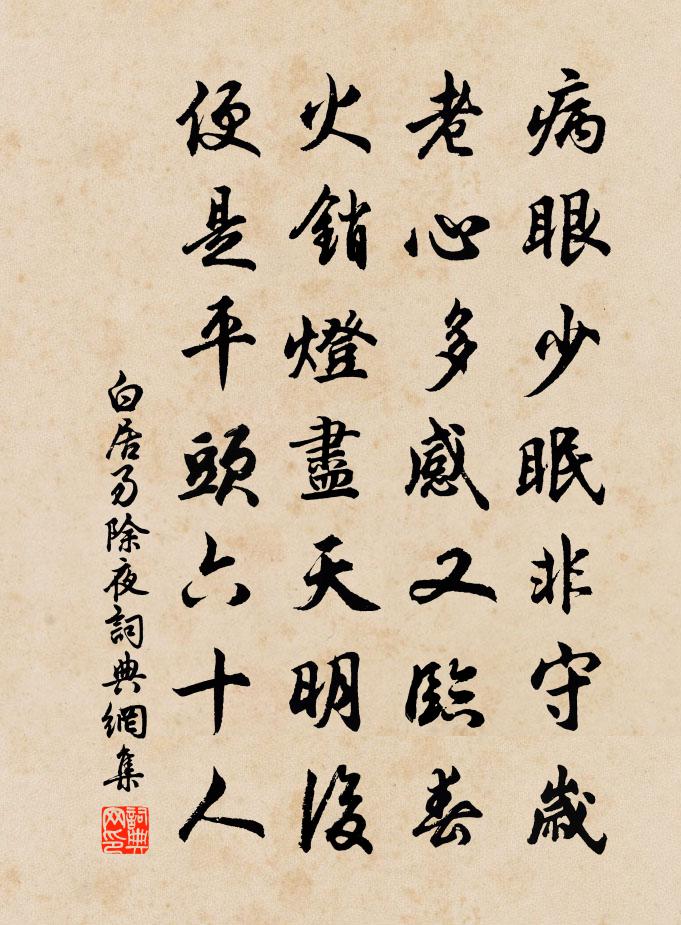 病眼少眠非守歲
老心多感又臨春
火銷燈盡天明後
便是平頭六十人
白居易除夜詞典網集
詞典
网印